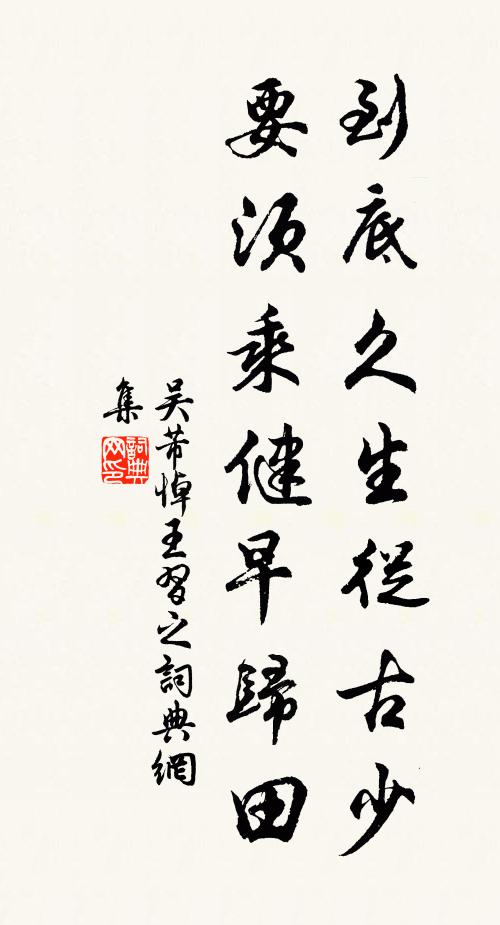 到底久生從古少
要須乘健早歸田
吴芾悼王習之詞典網
集
詞典網印